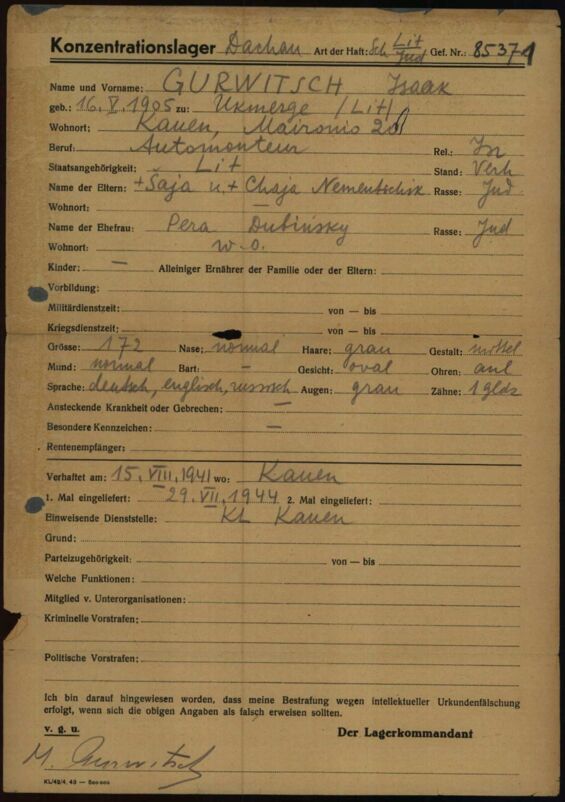 Konzentrationslager Dachau Art der Haft: Sch Lit Jud Gef. Nr.: 85371
Name und Vorname: GURWITSCH Isaak
geb.: 16. V. 1905 zu: Ukmerge (Lit)
Wohnort: Kauen, Maironio 20
Beruf: Automonteur Rel.:
Staatsangehörigkeit: Lit Stand: Verh
Name der Eltern: + Šaja u, + Chaja Nementschik Rasse: Jud
Wohnort: —
Name der Ehefrau: Pera Dubińsky Rasse: Jud
Wohnort: w. o.
Kinder: — Alleiniger Ernährer der Familie oder der Eltern:
Vorbildung:
Militärdienstzeit: von — bis
Kriegsdienstzeit: von — bis
Grösse: 172 Nase: normal Haare: grau Gestalt: mittel
Mund: normal Bart: — Gesicht: oval Ohren: anl
Sprache: deutsch, englisch, russisch Augen: grau Zähne: 1
Ansteckende Krankheit oder Gebrechen: —
Besondere Kennzeichen: —
Rentenempfänger:
Verhaftet am: 15. VIII. 1941 wo: Kauen
1. Mal eingeliefert: 29. VII. 1944 2. Mal eingeliefert:
Einweisende Dienststelle: KL Kauen
Grund:
Parteizugehörigkeit: von — bis
Welche Funktionen:
Mitglied v. Unterorganisationen:
Kriminelle Vorstrafen:
Politische Vorstrafen:
Ich bin darauf hingewiesen worden, dass meine Bestrafung wegen intellektueller Urkundenfälschung
erfolgt, wenn sich die obigen Angaben als falsch erweisen sollten.
v. g. u. Der Lagerkommandant
Gurwitsch
KL/42/4. 43 —